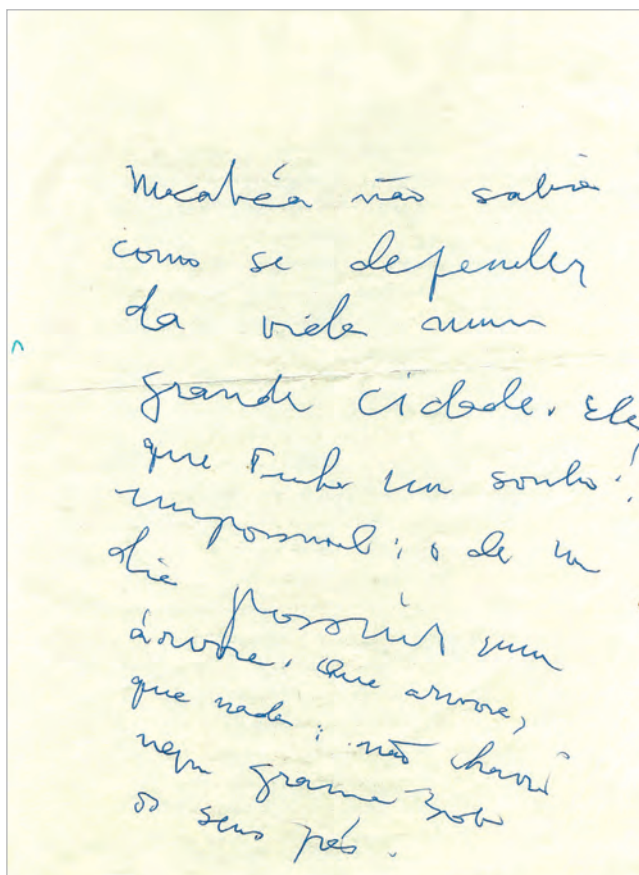 Macabéa não sabia
como se defender
da vida numa
grande cidade. Ela
que tinha um sonho
impossível: o de um
dia possuir uma
árvore. Que árvore,
que nada: não havia
nem grama sob
os seus pés.